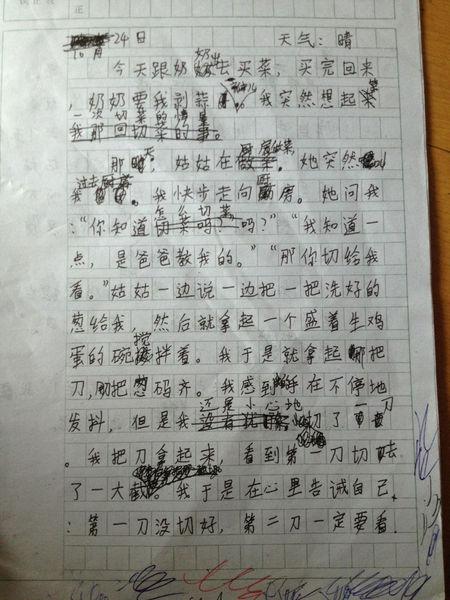 10月24日 天气：晴
今天跟奶奶去买菜，买完回来
，奶奶要我剥蒜。我突然想起第
一次切菜的情景
那天，姑姑在厨房做菜。她突然
我过去厨房。我快步走向厨房。她问我
：“你知道怎么切菜吗？”“我知道一
点，是爸爸教我的。”“那你切给我
看。”姑姑一边说一边把一把洗好的
葱给我，然后就拿起一个盛着生鸡
蛋的碗搅拌着。我于是就拿起那把
刀，把葱码齐。我感到手在不停地
发抖，但是我还是小心地切了一刀
。我把刀拿起来，看到第一刀切去
了一大截。我于是在心里告诫自己
：第一刀没切好，第二刀一定要看